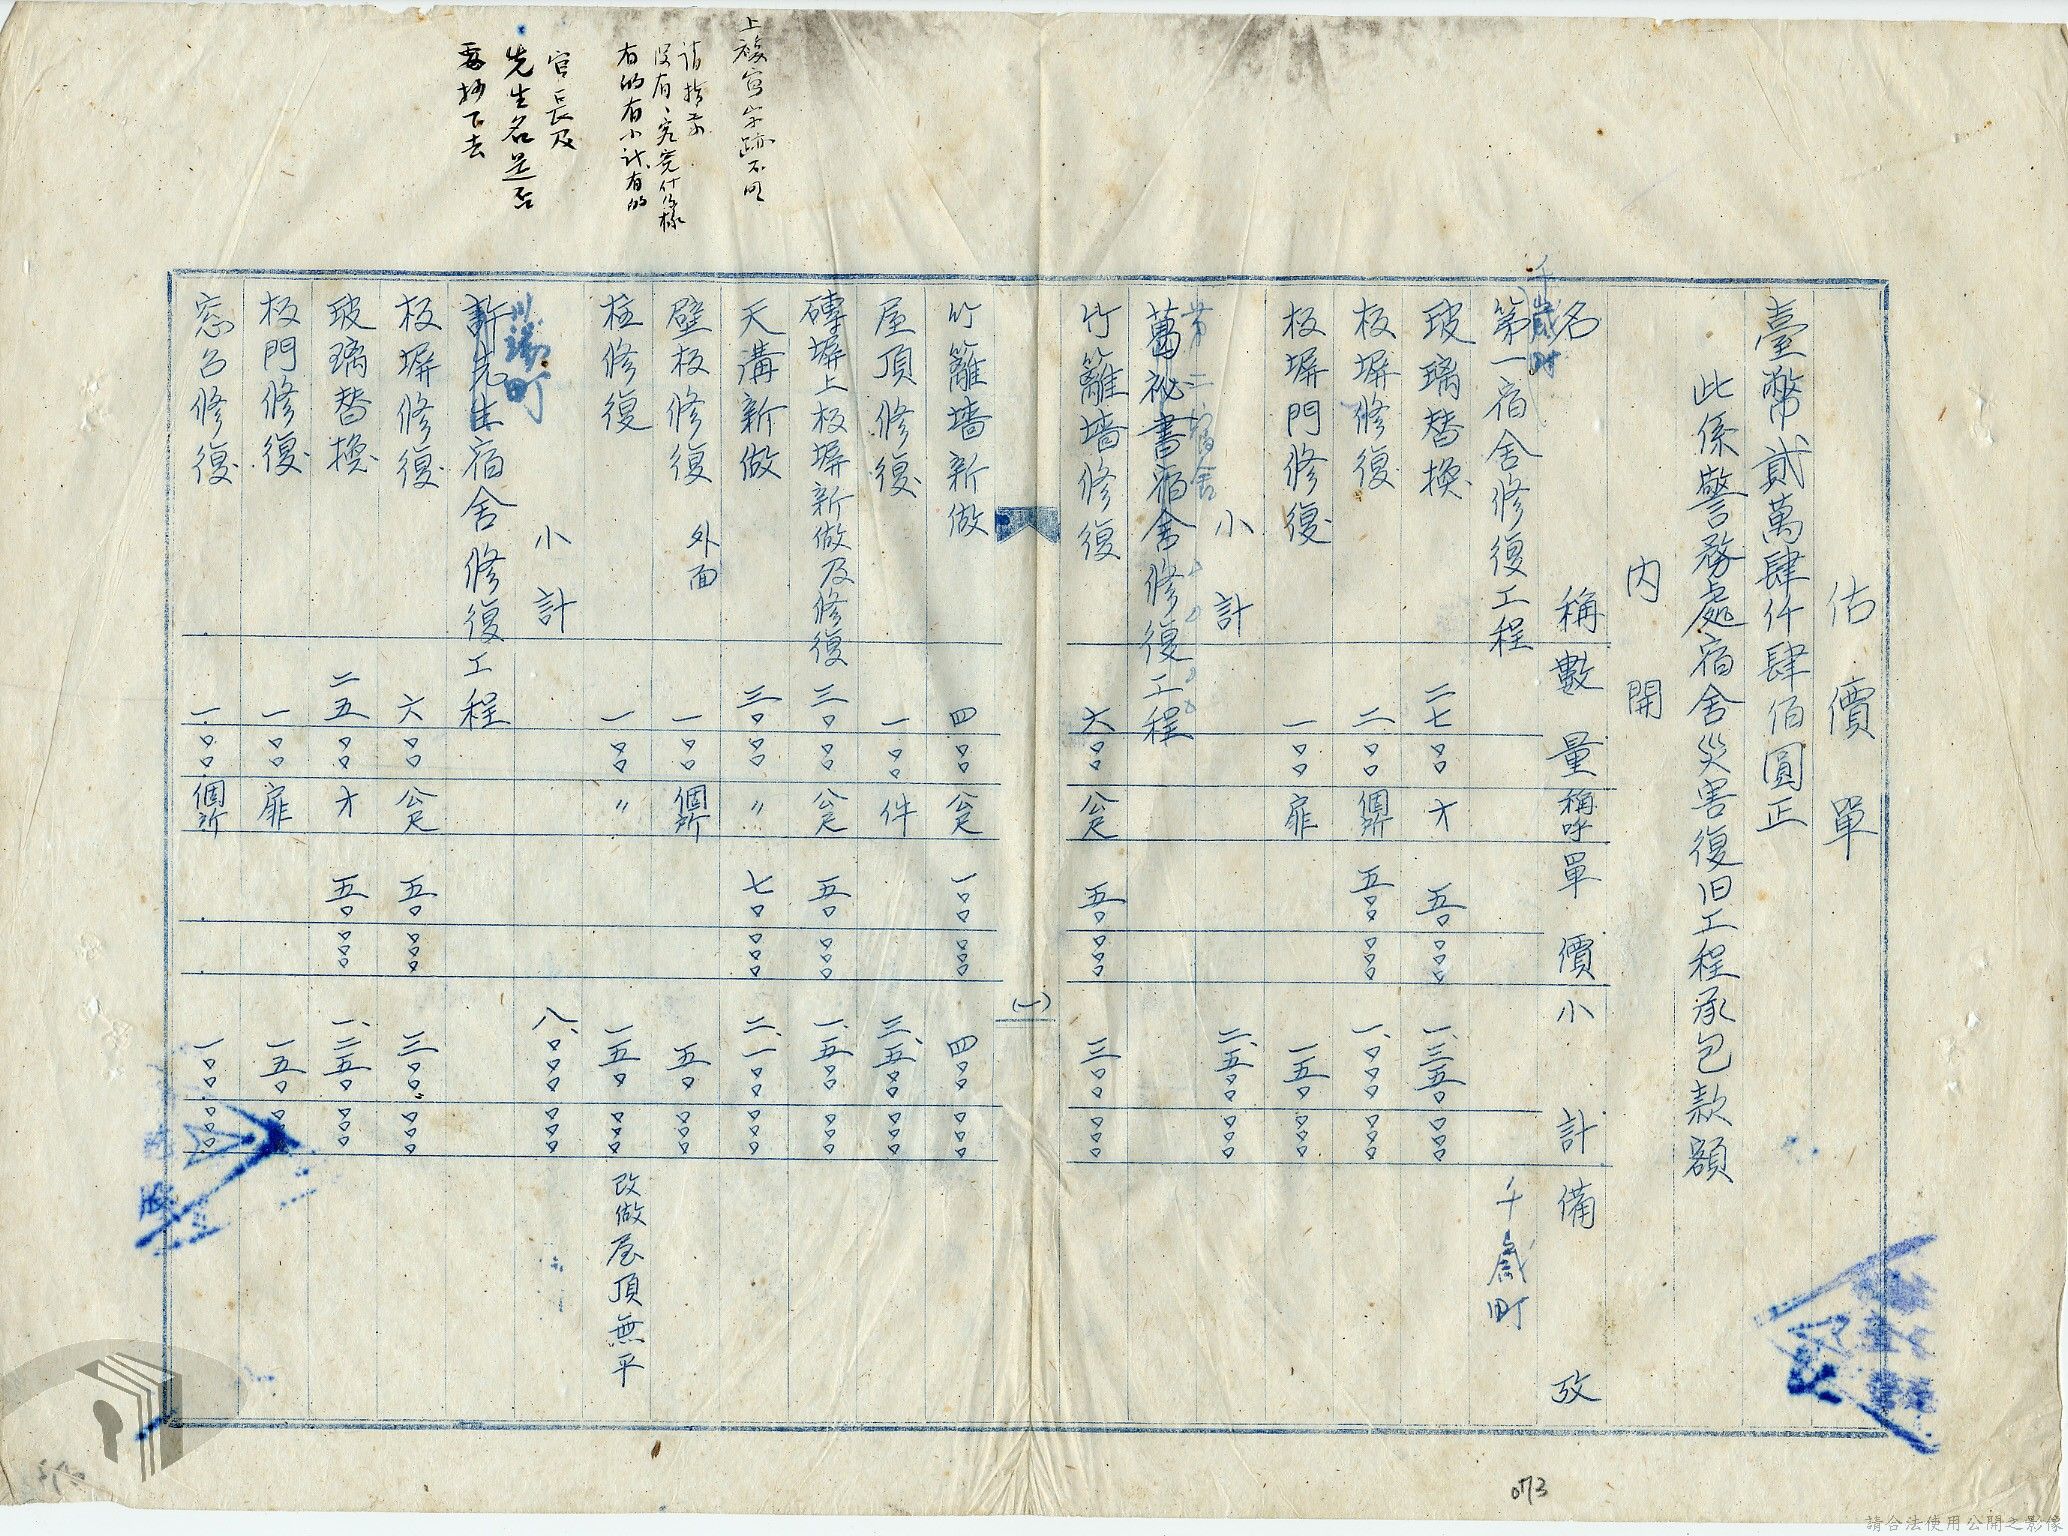 上複寫字跡不明
請指示
沒有、究竟什么樣
有的有小計有的
官長及
先生名是否
要抄下去
估價單
臺幣貳萬肆仟肆佰圓正
此係警務處宿舍災害復旧工程承包款額
內開
名稱 數量 稱呼 單價 小計 備攷
千歲町
第一宿舍修復工程 千歲町
玻璃替換 二七 〇〇 才 五〇 〇〇〇 一、三五〇 〇〇〇
板塀修復 二 〇〇 個所 五〇〇 〇〇〇 一、〇〇〇 〇〇〇
板塀門修復 一 〇〇 扉 一五〇 〇〇〇
小計 二、五〇〇 〇〇〇
第二宿舍
葛祕書宿舍修復工程
竹籬墻修復 六 〇〇 公尺 五〇 〇〇〇 三〇〇 〇〇〇
(一)
竹籬墻新做 四 〇〇 公尺 一〇〇 〇〇〇 四〇〇 〇〇〇
屋頂修復 一 〇〇 件 三、五〇〇 〇〇〇
磚塀上板塀新做及修復 三〇 〇〇 公尺 五〇 〇〇〇 一、五〇〇 〇〇〇
天溝新做 三〇 〇〇 〃 七〇 〇〇〇 二、一〇〇 〇〇〇
壁板修復 外面 一 〇〇 個所 五〇 〇〇〇
柱修復 一 〇〇 〃 一五〇 〇〇〇 改做屋頂無平
小計 八、〇〇〇 〇〇〇
川端町
許先生宿舍修復工程
板塀修復 六 〇〇 公尺 五〇 〇〇〇 三〇〇 〇〇〇
玻璃替換 二五 〇〇 才 五〇 〇〇〇 一、二五〇 〇〇〇
板門修復 一 〇〇 扉 一五〇 〇〇〇
窓台修復 一 〇〇 個所 一〇〇 〇〇〇
073
請合法使用公開之影像